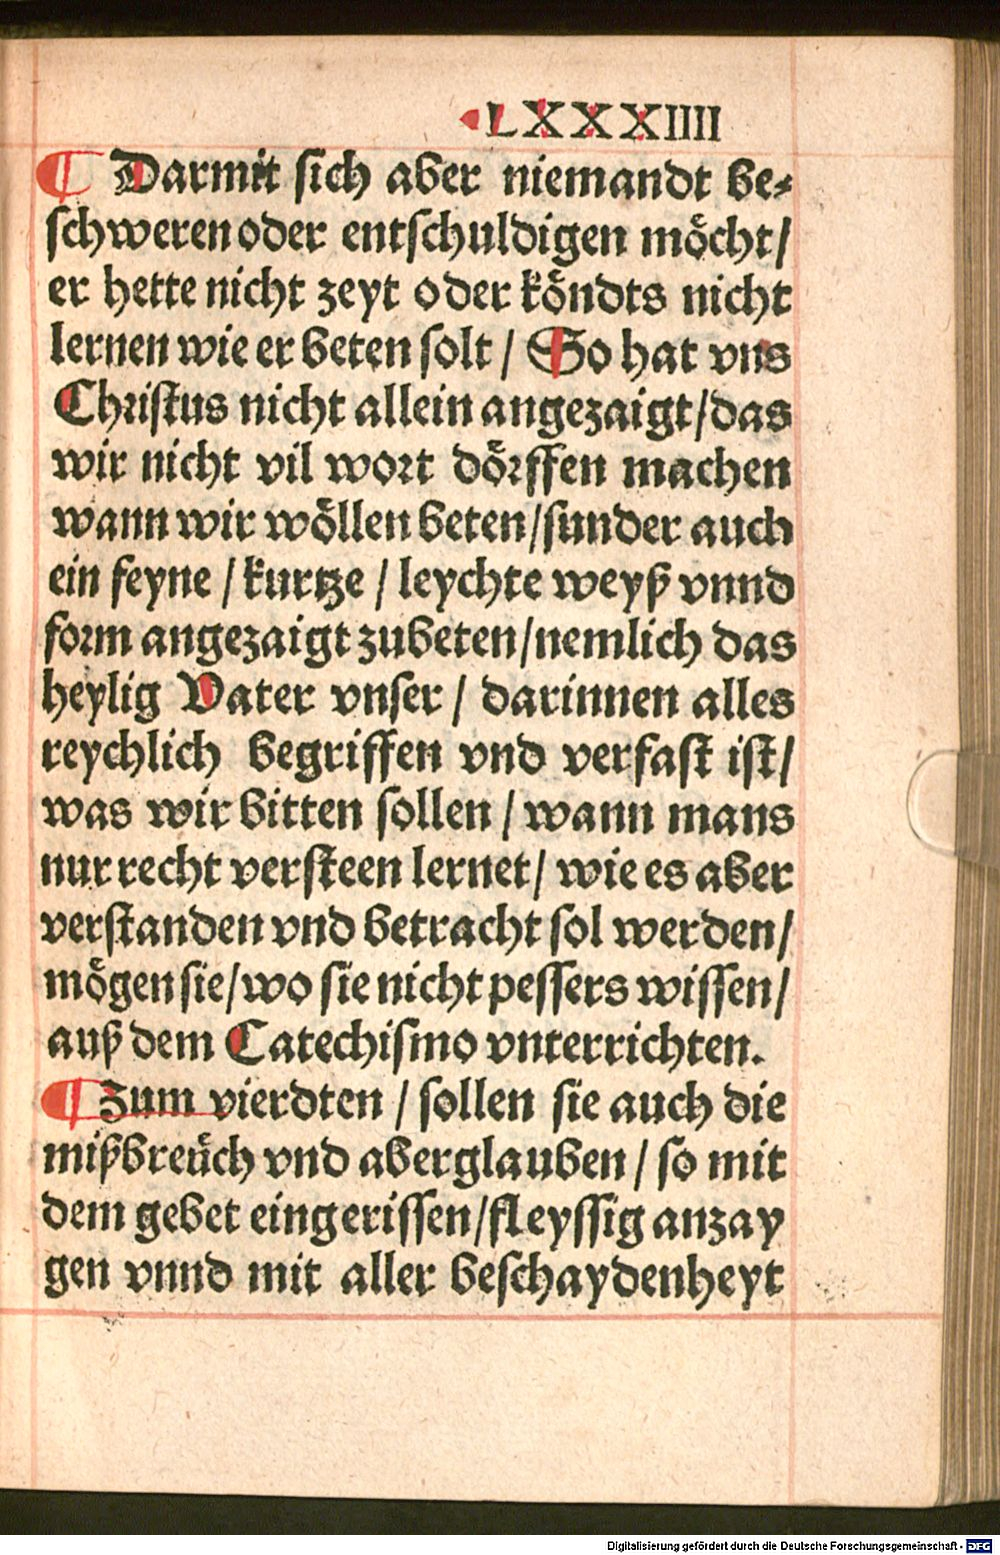 LXXXIIII
¶ Darmit sich aber niemandt be-
schweren oder entschuldigen möcht/
er hette nicht zeyt oder köndts nicht
lernen wie er beten solt / So hat vns
Christus nicht allein angezaigt/das
wir nicht vil wort dörffen machen
wann wir wöllen beten/sunder auch
ein feyne / kurtze / leychte weyß vnnd
form angezaigt zubeten/nemlich das
heylig Vater vnser / darinnen alles
reychlich begriffen vnd verfast ist/
was wir bitten sollen / wann mans
nur recht versteen lernet/ wie es aber
verstanden vnd betracht sol werden/
mögen sie/wo sie nicht pessers wissen/
auß dem Catechismo vnterrichten.
¶ Zum vierdten / sollen sie auch die
mißbreuͤch vnd aberglauben / so mit
dem gebet eingerissen/fleyssig anzay
gen vnnd mit aller beschaydenheyt
Digitalisierung gefördert durch die Deutsche Forschungsgemeinschaft - DFG